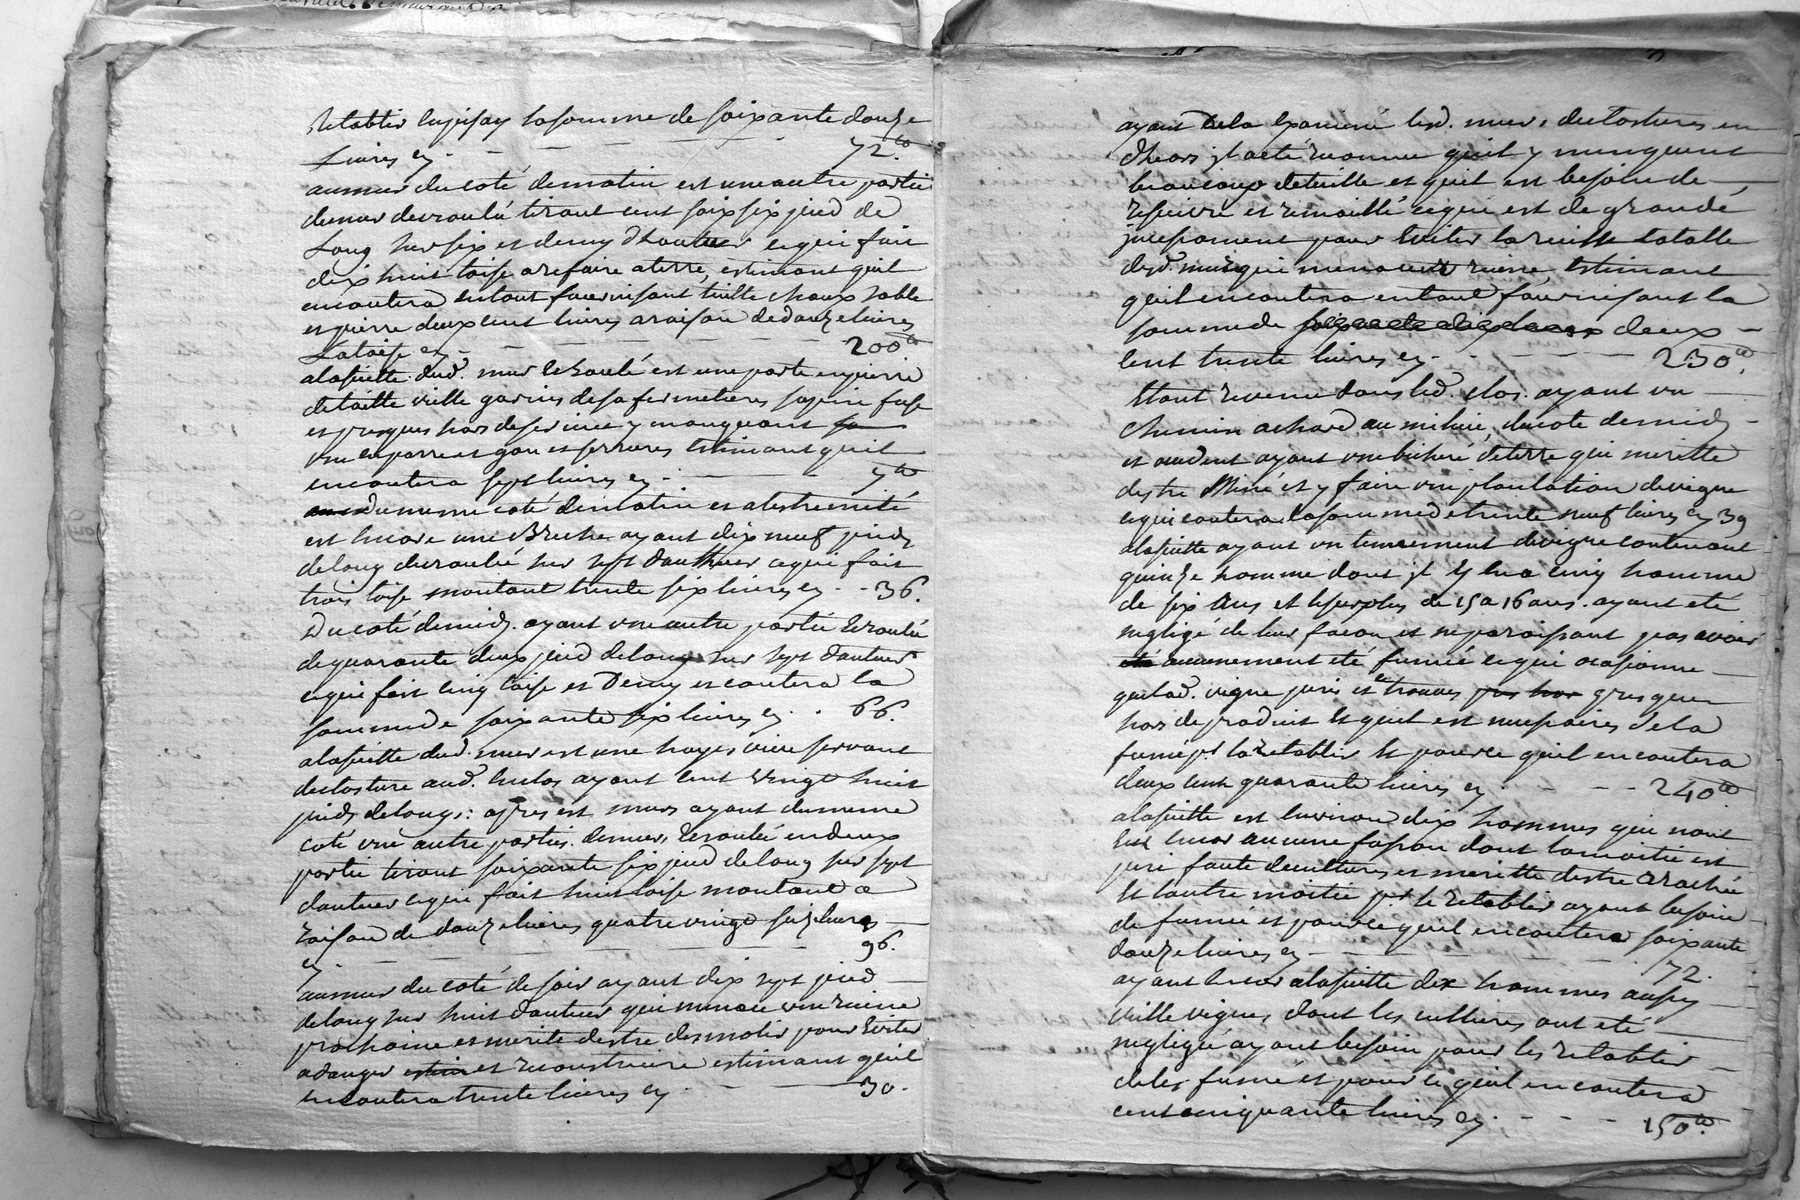 Retablir la somme de soixante douze
Livres cy. - - - - - 72.tt
au mur du coté de matin est une autre partie
de mur deroulé tirant cent soix six pied de
Long sur six et demy d'hauteur ce qui fait
dix huit toise a refaire a terre, estimant quil
encoutera entout fournissant tuille chaux sable
et pierre deux cent livres a raison de douze livres
La toise cy - - - - 200tt
alasuitte dud. mur Ecroulé est une porte en pierre
de taille vielle garnies de sa fermetieres sapin
et presques hors de service y manquant
une et serrures estimant quil
encoutera sept livres cy - - 7tt
du meme coté de matin et alextremité
est encore une Breche ayant dix neuf pieds
de long deroulé sur sept d'autheur ce qui fait
trois toise montant trente six livres cy - - 36.
Du coté de midy. ayant une autre partie Ecroulée
de quarante deux pied de long sur sept d'auteur
ce qui fait cinq toise et Demy et coutera la
somme de soixante six livres cy . . 66.
alasuitte dud. mur est une hayes vive servant
de closture aud. enclos ayant cent vingt huit
pieds de long: apres est murs ayant du meme
coté une autre parties de mur, Ecroulée en deux
partie tirant soixante six pied de long sur sept
d'auteur ce qui fait huit toise montant a
raison de douze livres quatre vingt seize livres
cy - - - - - 96.
au mur du coté de soir ayant dix sept pied
de long sur huit d'auteur qui menace une ruine
prochaine et merite destre desmolir pour Eviter
a danger et reconstruire estimant quil
encoutera trente livres cy - - 30.
ayant Dela Examiné lesd. murs de closture en
dheors il aeté reconnu quil y manquent
beaucoup de tuille et quil est besoin de
ressuivre et remaillé ce qui est de grande
pour Eviter la ruisse totalle
desd. murs qui menacent ruine Estimant
quil encoutera entout fournissant la
somme de deux
cent trente livres cy. - - - 230.tt
Etant revenu dans led. clos. ayant un
chemin a chard au milieu, du coté de midy
et ayant une bicheré de terre qui meritte
destre Mine et y faire une plantation de vigne
ce qui coutera la somme de trente neuf livres cy 39
alasuitte ayant un tennement de vigne contenant
quinze homme dont il y en a cinq homme
de six Ans et le surplus de 15 a 16 ans. ayant eté
negligé de leur facon et ne paroissant pas avoir
aucunement eté fumée ce qui ocasionne
que lad. vigne peris et ce trouves presques
hors de produit Et quil est necessaires de la
fumé pr la retablir Et pour ce quil en coutera
deux cent quarante livres cy. - - - 240.tt
alasuitte est Environ dix hommes qui nont
Eut encor aucune fasson dont la moitié est
peri faute de cultures et meritte destre arachée
Et l'autre moitié pr le Retablir ayant besoin
de fumée et pour ce quil en coutera soixante
douze livres cy - - - - 72.
ayant encor alasuitte dix hommes aussy
vielle vignes, dont les cultures ont eté
negligée ayant besoin pour les retablir
de les fumé et pour ce quil en coutera
cent cinquante livres cy. - - - 150.tt